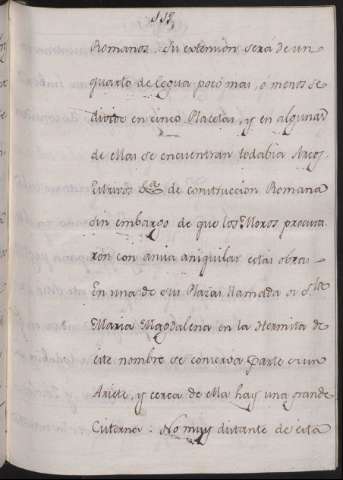 118,
Romanos. Su extension será de un
quarto de legua poco mas, ó menos se
divide en cinco Placetas, y en algunas
de ellas se encuentran todabia Arcos
Estrivos &a. de construccion Romana
sin embargo de que los Moros procura
ron con ansia aniquilar estas obras
En una de sus Plazas llamada de Sta
Maria Magdalena en la Hermita de
este nombre se conserva parte de un
Ariete, y cerca de ella hay una grande
Cisterna: No muy distante de esta